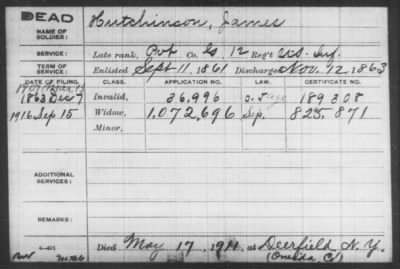 DEAD
NAME OF SOLDIER: Hutchinson, James
SERVICE: Late rank, Pvt Co. G, 12 Reg't U.S. Inf.
TERM OF SERVICE: Enlisted Sept 11, 1861 Discharged Nov. 12, 1863
DATE OF FILING. CLASS. APPLICATION NO. LAW. CERTIFICATE NO.
1907
1863 Dec 7 Invalid, 36,996 189 308
1916 Sep 15 Widow, 1,072,696 Sep. 825,871
Minor,
ADDITIONAL SERVICES:
REMARKS:
Died May 17, 1911, at Deerfield N.Y.
(Oneida Co)